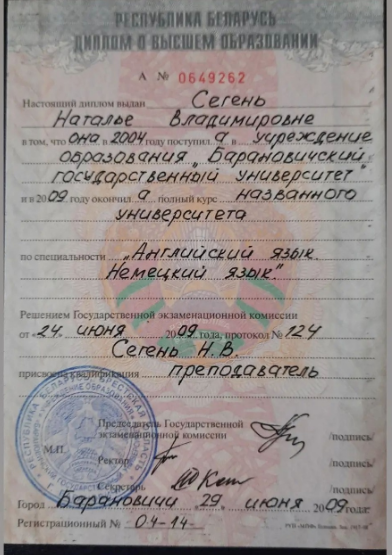 РЕСПУБЛИКА БЕЛАРУСЬ
ДИПЛОМ О ВЫСШЕМ ОБРАЗОВАНИИ
А № 0649262
Настоящий диплом выдан Сегень
Наталье Владимировне
в том, что она в 2004 году поступил а в учреждение
образования „Барановичский
государственный университет"
и в 2009 году окончил а полный курс названного
университета
по специальности „Английский язык.
Немецкий язык"
Решением Государственной экзаменационной комиссии
от 24 июня 2009 года, протокол № 124
Сегень Н.В.
присвоена квалификация преподаватель
Председатель Государственной
экзаменационной комиссии /подпись/
М.П. Ректор /подпись/
Секретарь /подпись/
Город Барановичи 29 июня 2009 года.
Регистрационный № 04-14-